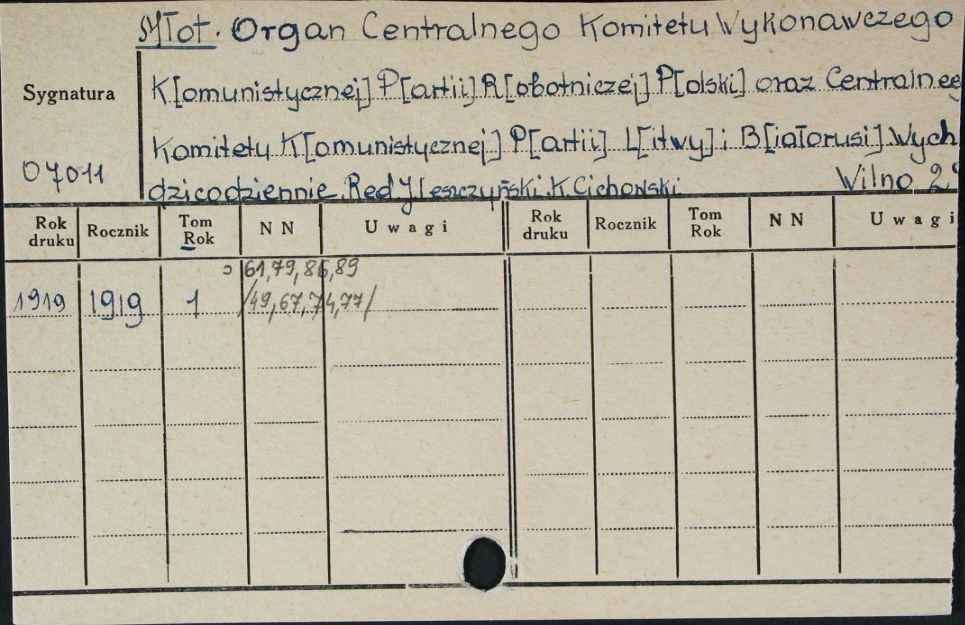 Młot. Organ Centralnego Komitetu Wykonawczego
K[omunistycznej] P[artii] R[obotniczej] P[olski] oraz Centralne
Komitetu K[omunistycznej] P[artii] L[itwy] i B[iałorusi]. Wych
dzi codziennie. Red J Leszczyński. K. Cichowski.
Wilno, 2
Sygnatura
07011
Rok druku Rocznik Tom Rok NN Uwagi Rok druku Rocznik Tom Rok NN Uwagi
61, 79, 86, 89
1919 1919 1 /49, 67, 74, 77/